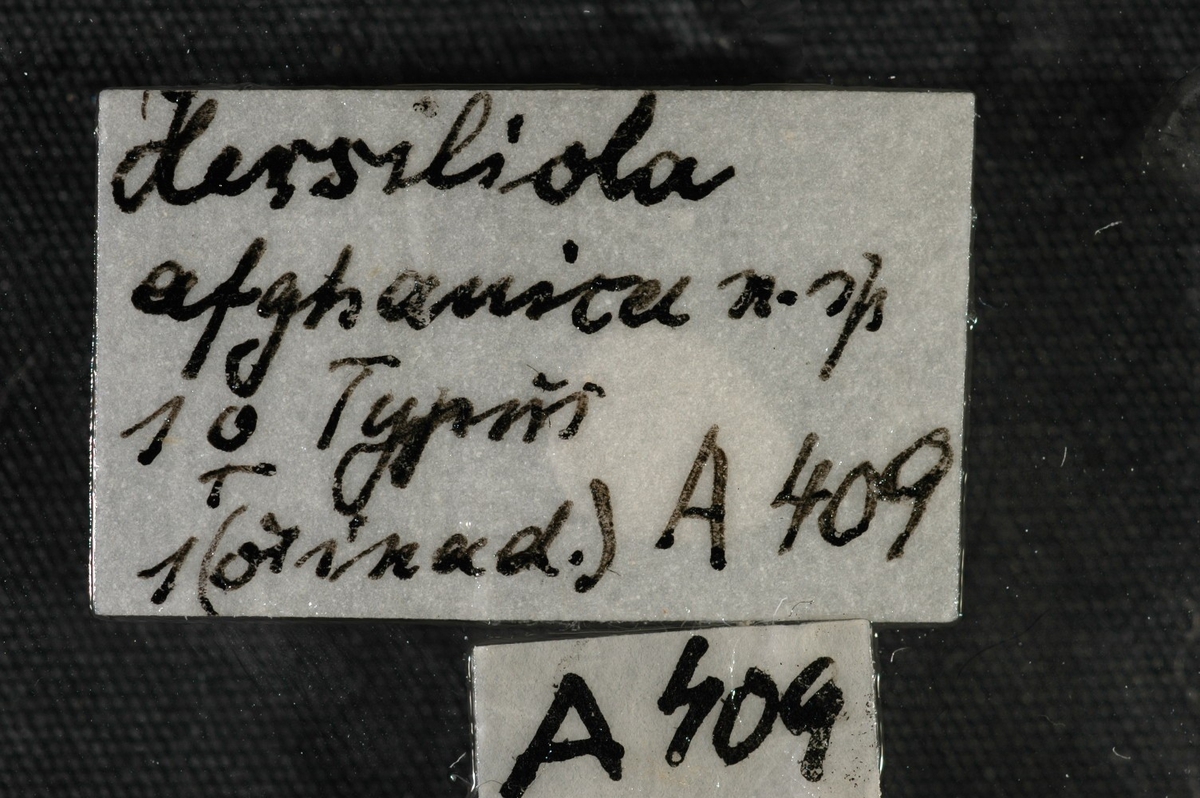 Hersiliola
afghanica n. sp
1 ♀ Typus
1 (♂ inad.) A 409
A 409